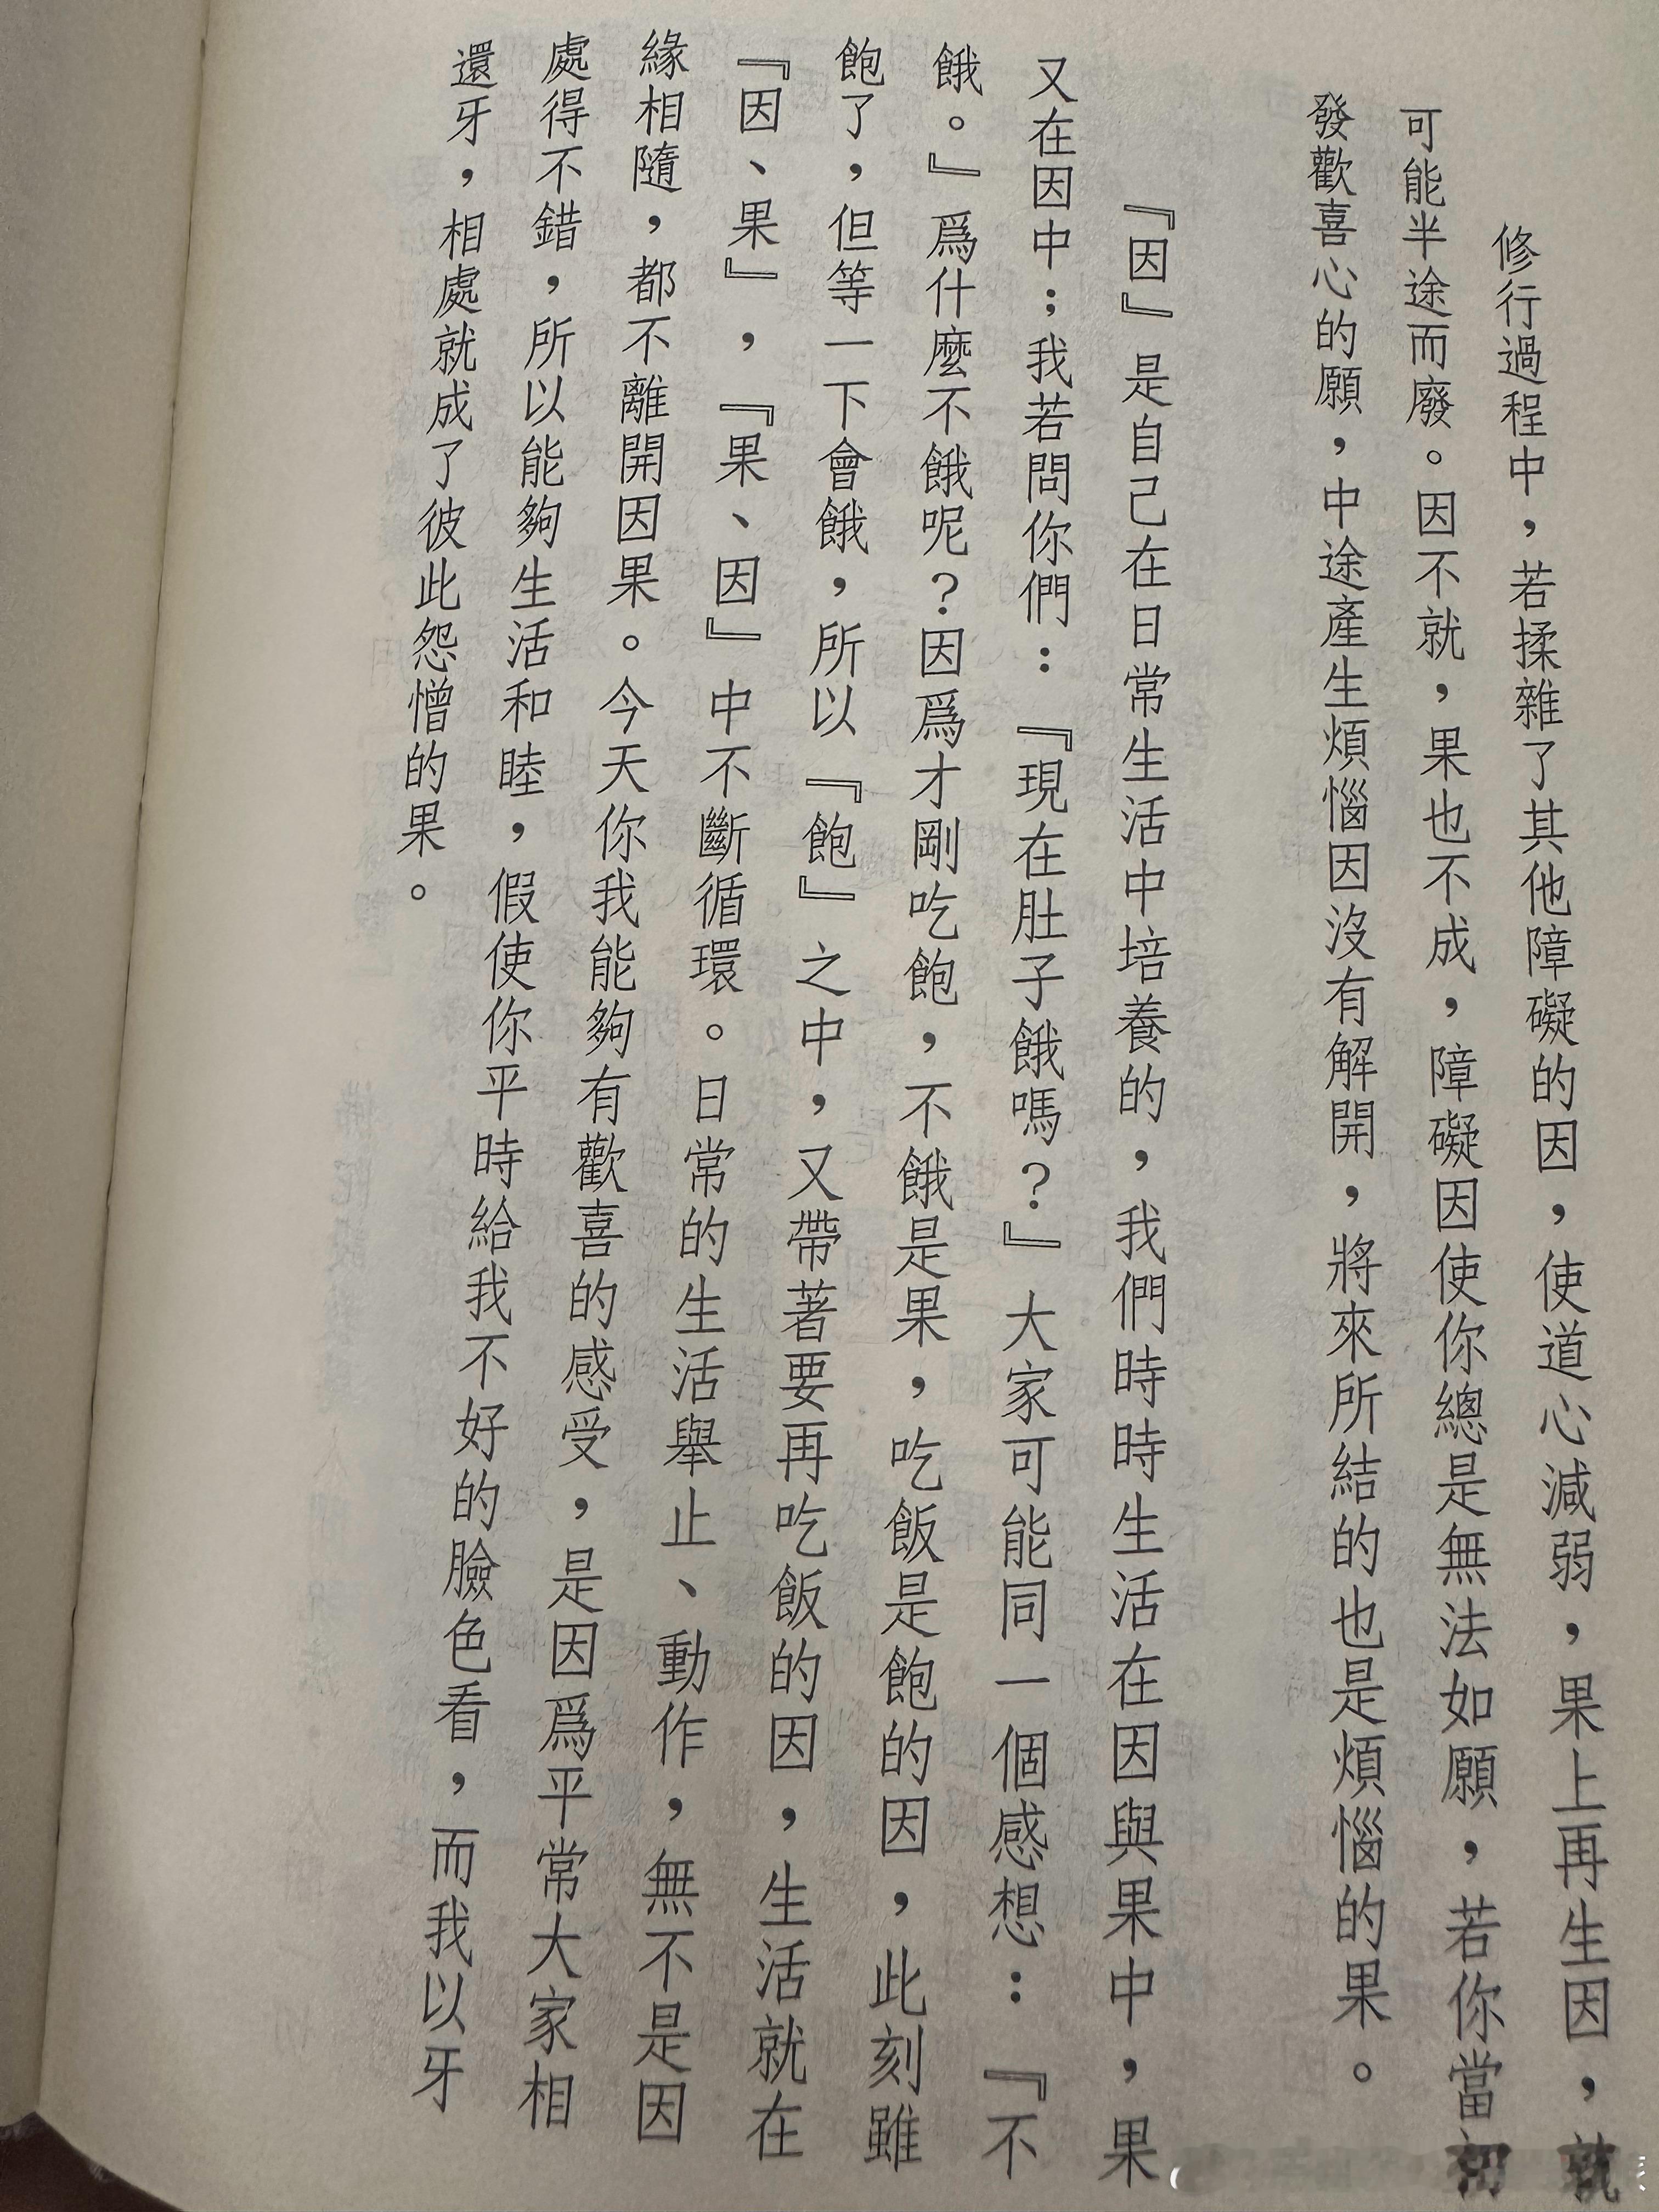 修行過程中，若揉雜了其他障礙的因，使道心減弱，果上再生因，就
可能半途而廢。因不就，果也不成，障礙因使你總是無法如願，若你當初
發歡喜心的願，中途產生煩惱因沒有解開，將來所結的也是煩惱的果。
『因』是自己在日常生活中培養的，我們時時生活在因與果中，果
又在因中；我若問你們：『現在肚子餓嗎？』大家可能同一個感想：『不
餓。』爲什麼不餓呢？因爲才剛吃飽，不餓是果，吃飯是飽的因，此刻雖
飽了，但等一下會餓，所以『飽』之中，又帶著要再吃飯的因，生活就在
『因、果』，『果、因』中不斷循環。日常的生活舉止、動作，無不是因
緣相隨，都不離開因果。今天你我能夠有歡喜的感受，是因爲平常大家相
處得不錯，所以能夠生活和睦，假使你平時給我不好的臉色看，而我以牙
還牙，相處就成了彼此怨憎的果。